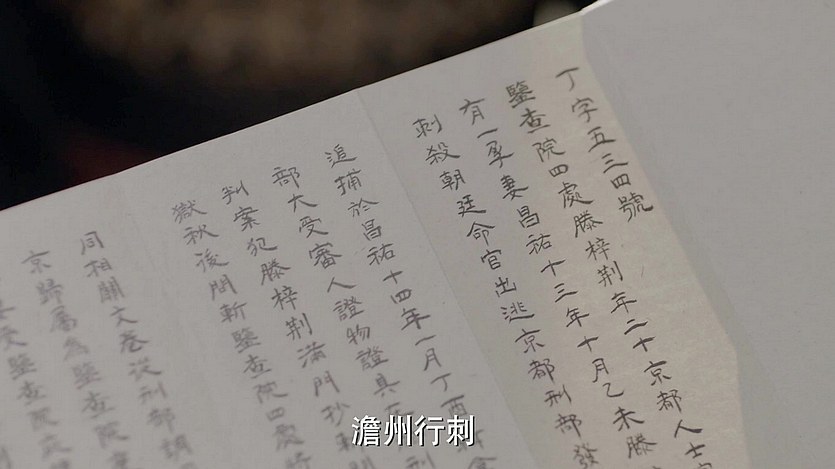 丁字五三四號
鑒查院四處滕梓荆年二十京都人士
有一孕妻昌祐十三年十月乙未滕
刺殺朝廷命官出逃京都刑部發
追捕於昌祐十四年一月丁酉
部大受審人證物證具在
判案犯滕梓荆滿門抄斬
獄秋後問斬鑒查院四處將
同相關文卷從刑部調
京歸屬為鑒查院
受鑒查院
澹州行刺